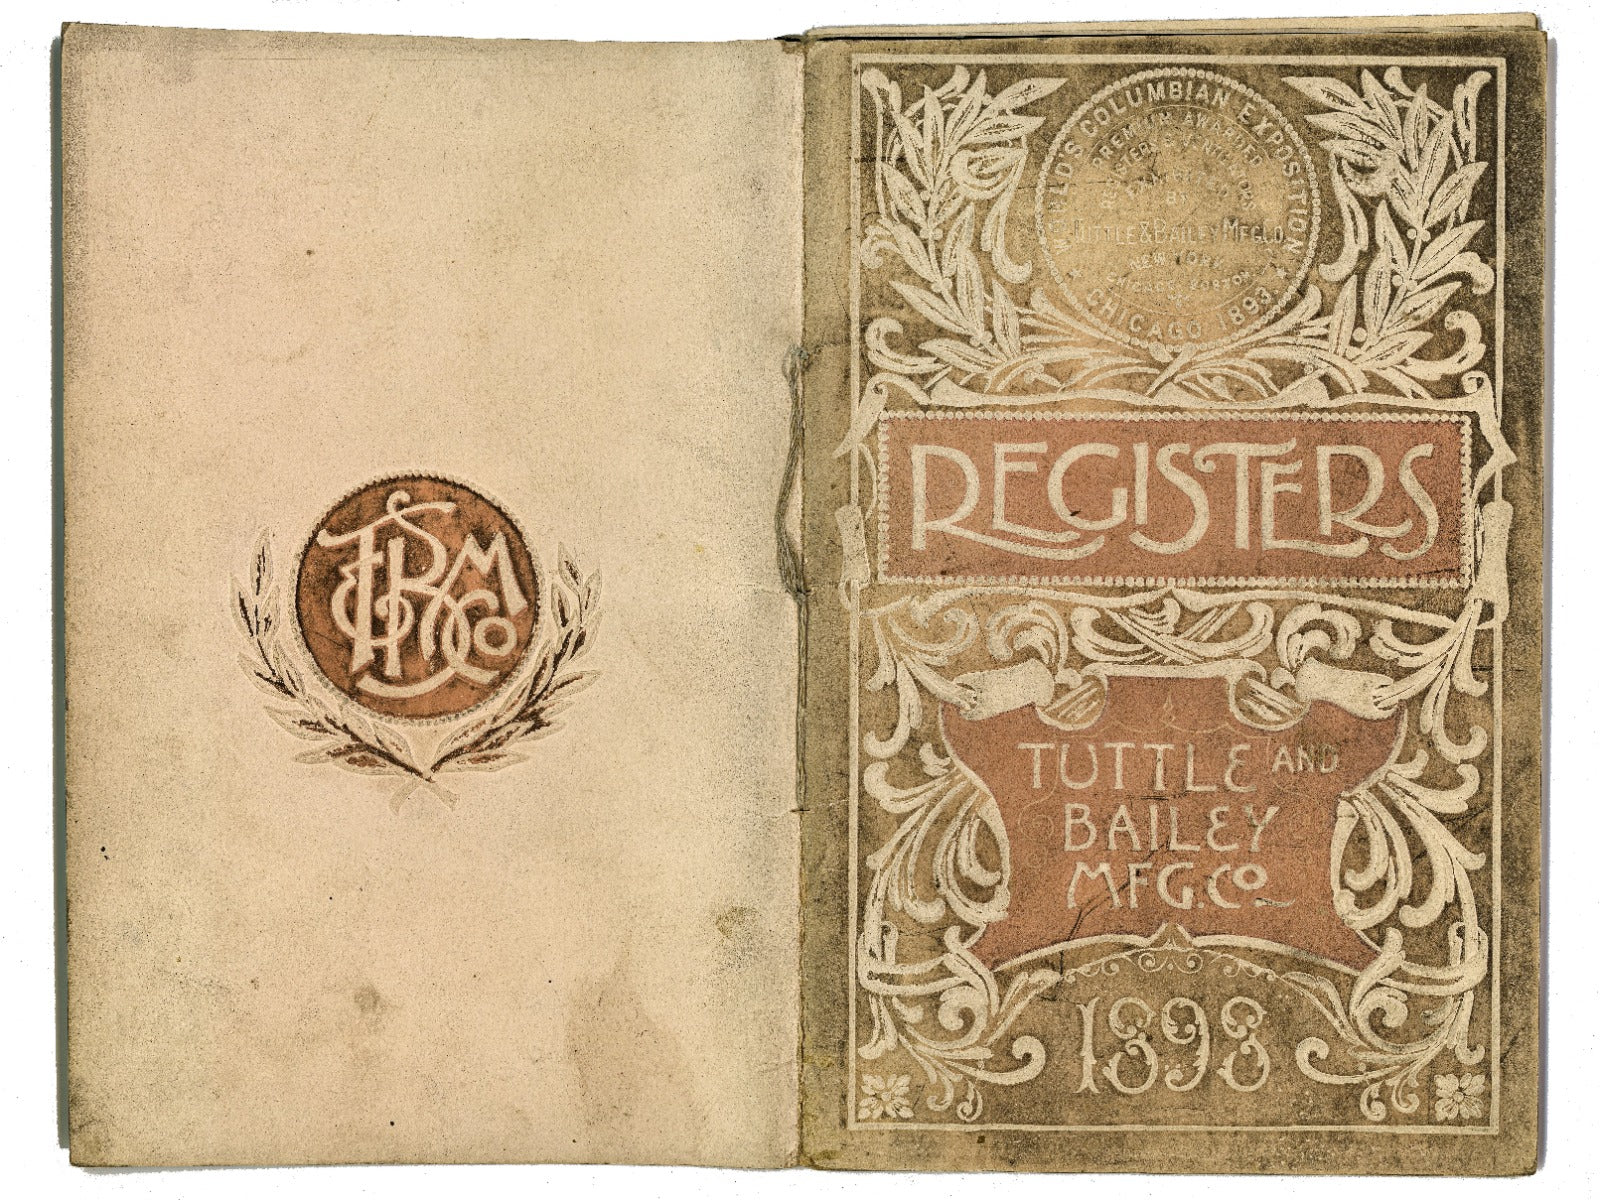 T&B M Co
WORLD'S COLUMBIAN EXPOSITION
PREMIUM AWARDED
REGISTERS & VENTILATORS
EXHIBITED
BY
TUTTLE & BAILEY MFG. CO.
NEW YORK
CHICAGO BOSTON
CHICAGO 1893
REGISTERS
TUTTLE AND
BAILEY
MFG. CO
1898